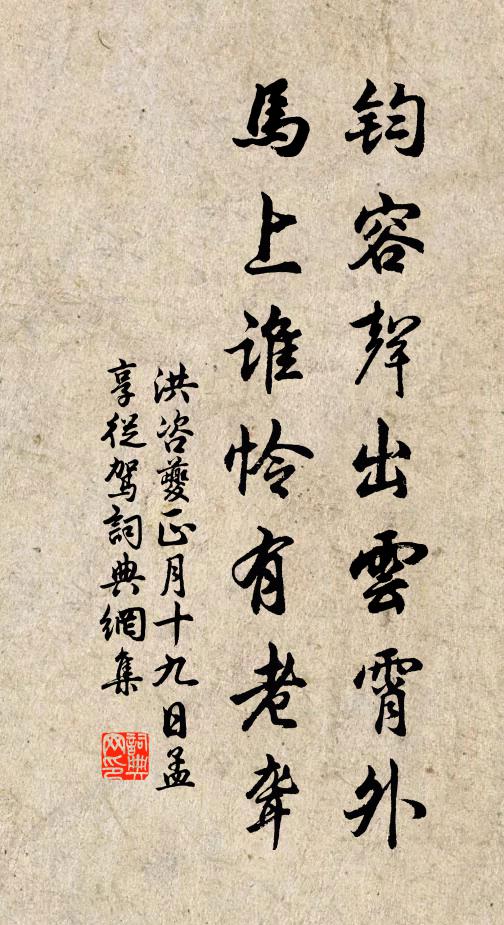 鈞容聲出雲霄外
馬上誰怜有老聋
洪咨夔正月十九日孟
享從駕詞典網集
詞典
网印